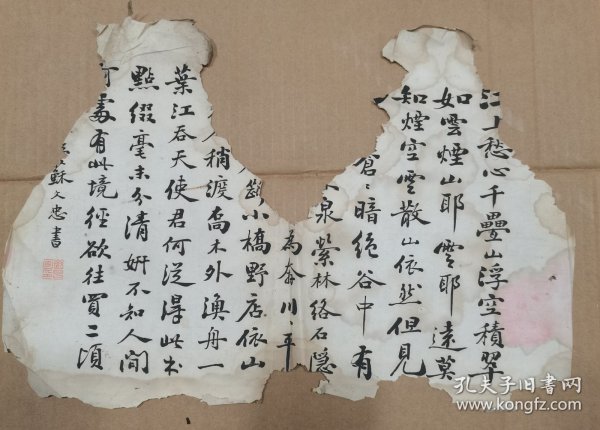 江上愁心千疊山浮空積翠
如雲煙山耶雲耶遠莫
知煙空雲散山依然但見
蒼〻暗絕谷中有
泉縈林絡石隱
為奔川〻平
斷小橋野店依山
稍渡喬木外漁舟一
葉江吞天使君何從得此本
點綴毫末分清妍不知人間
何處有此境徑欲往買二頃
蘇文忠書
孔夫子旧书网
www.kongfz.com